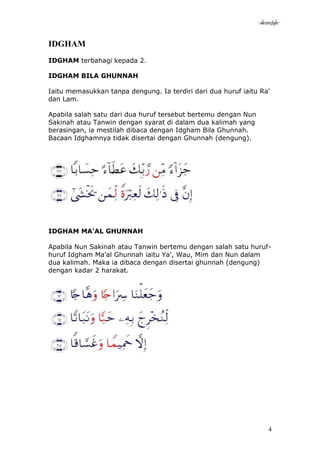 -alwarizqfafa-
IDGHAM
IDGHAM terbahagi kepada 2.
IDGHAM BILA GHUNNAH
Iaitu memasukkan tanpa dengung. Ia terdiri dari dua huruf iaitu Ra'
dan Lam.
Apabila salah satu dari dua huruf tersebut bertemu dengan Nun
Sakinah atau Tanwin dengan syarat di dalam dua kalimah yang
berasingan, ia mestilah dibaca dengan Idgham Bila Ghunnah.
Bacaan Idghamnya tidak disertai dengan Ghunnah (dengung).
جَزَآءً مِّن رَّبِّكَ عَطَآءً حِسَابًا ﴿٣٦﴾
إِنَّ فِى ذَٰلِكَ لَعِبْرَةً لِّمَن يَخْشَىٰٓ ﴿٢٦﴾
IDGHAM MA'AL GHUNNAH
Apabila Nun Sakinah atau Tanwin bertemu dengan salah satu huruf-
huruf Idgham Ma'al Ghunnah iaitu Ya', Wau, Mim dan Nun dalam
dua kalimah. Maka ia dibaca dengan disertai ghunnah (dengung)
dengan kadar 2 harakat.
وَجَعَلْنَا سِرَاجًا وَهَّاجًا ﴿١٣﴾
لِّنُخْرِجَ بِهِۦ حَبًّا وَنَبَاتًا ﴿١٥﴾
إِلَّا حَمِيمًا وَغَسَّاقًا ﴿٢٥﴾
4